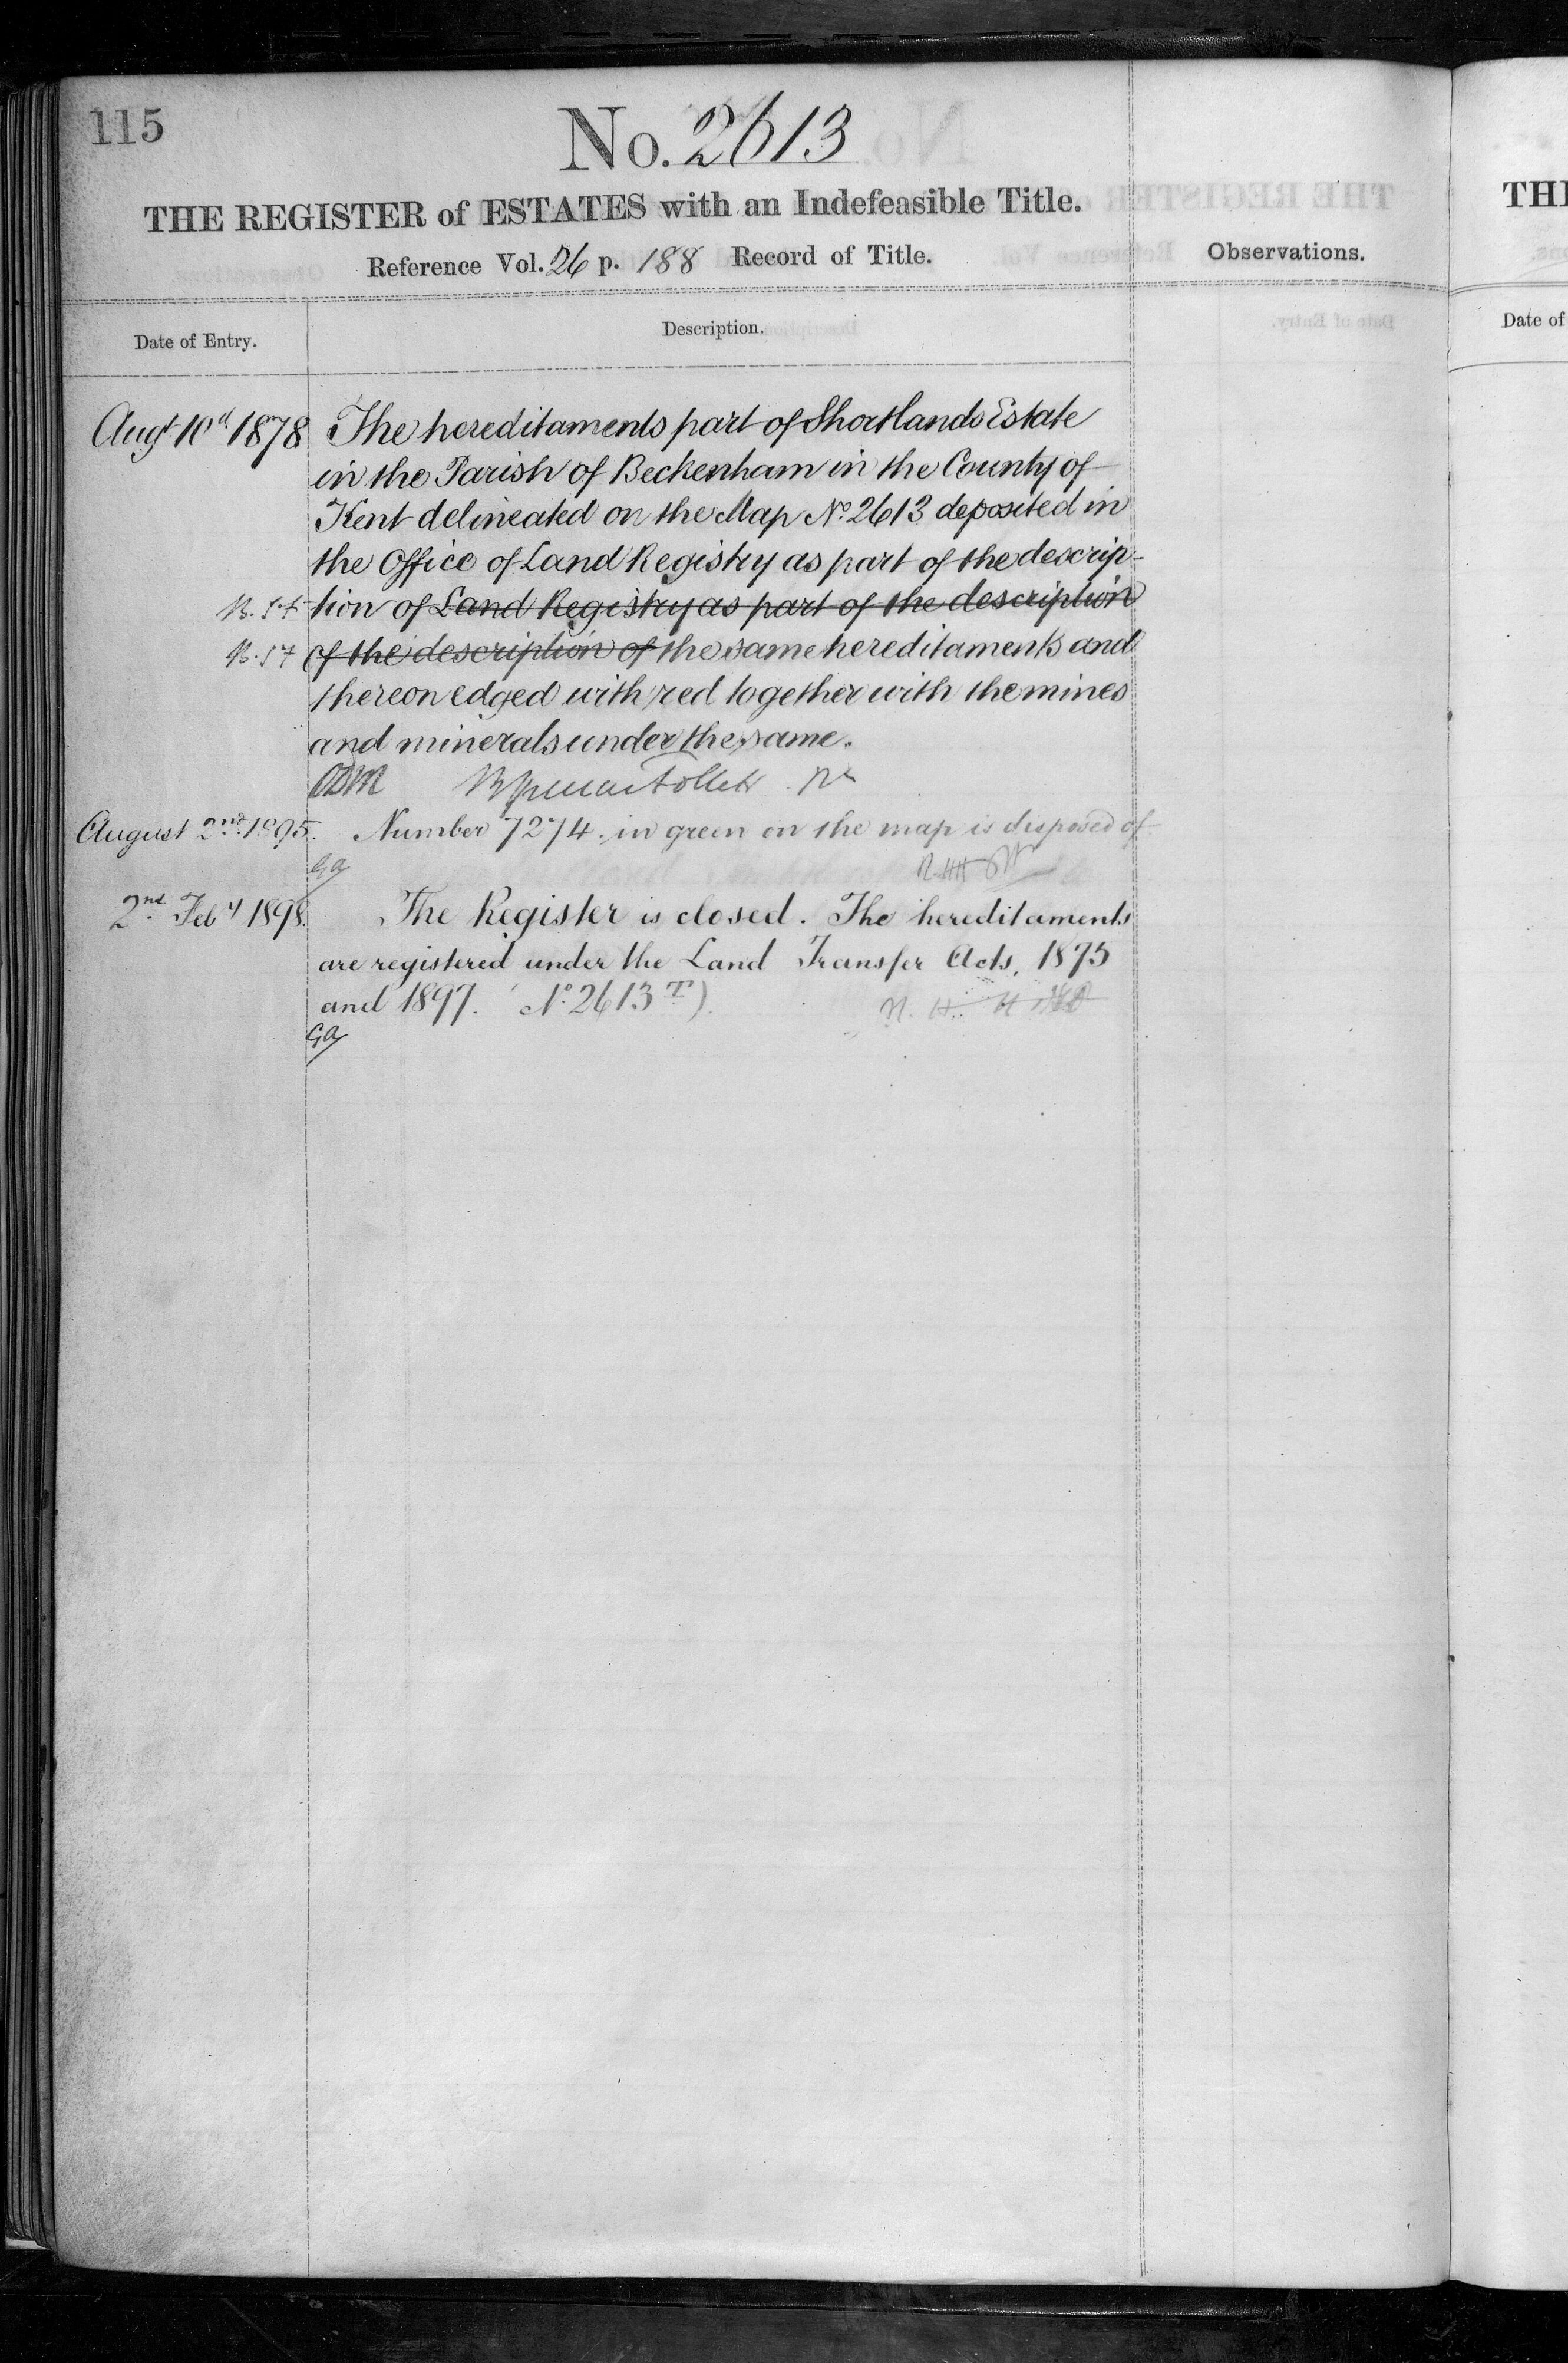 115
No. 2613
THE REGISTER of ESTATES with an Indefeasible Title.
Reference Vol. 26 p. 188 Record of Title.
Observations.
Date of Entry.
Description.
Augt 10th 1878 The hereditaments part of Shortlands Estate
in the Parish of Beckenham in the County of
Kent delineated on the Map No. 2613 deposited in
the Office of Land Registry as part of the descrip-
tion of Land Registry as part of the description
of the description of the same hereditaments and
thereon edged with red together with the mines
and minerals under the same.
August 2nd 1895. Number 7274 in green on the map is disposed of
GA
2nd Feby 1898. The Register is closed. The hereditaments
are registered under the Land Transfer Acts, 1875
and 1897. (No. 2613 T)
GA
THE
Date of